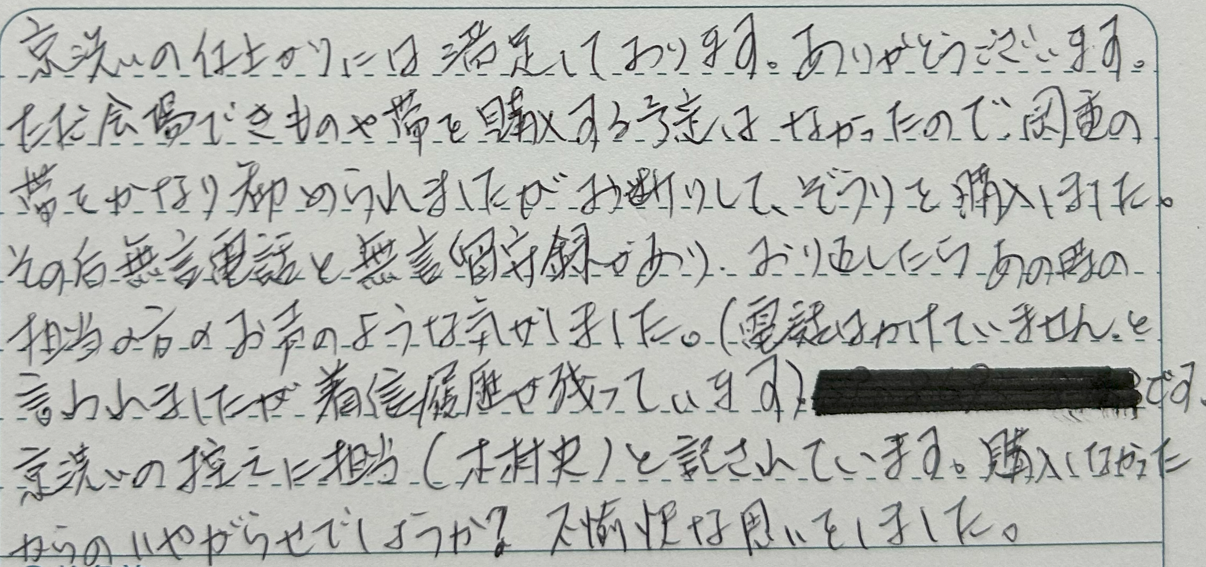 京洗いの仕上がりには満足しております。ありがとうございます。
ただ会場できものや帯を購入する予定はなかったので、関重の
帯をかなり勧められましたがお断りして、ぞうりを購入しました。
その后無言電話と無言留守録があり、おり返したらあの時の
担当の方のお声のような気がしました。(電話はかけていません。と
言われましたが着信履歴が残っています)です。
京洗いの控えに担当(木村史)と記されています。購入しなかった
からのいやがらせでしょうか？不愉快な思いをしました。